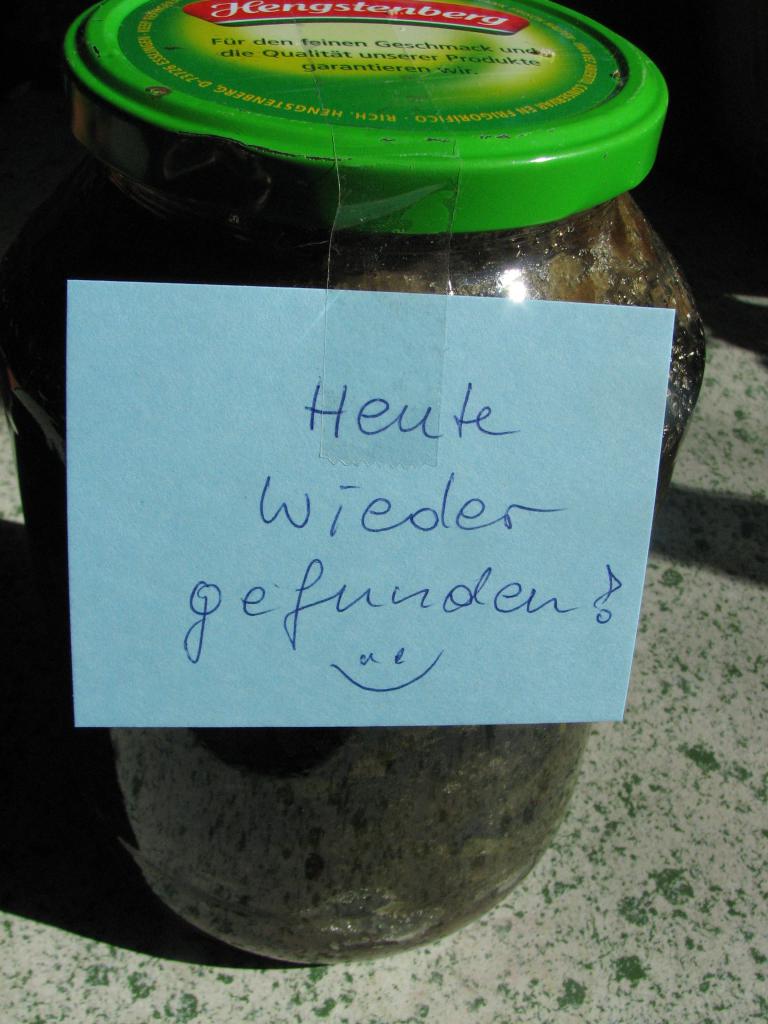 Hengstenberg
Für den feinen Geschmack und
die Qualität unserer Produkte
garantieren wir.
RICH. HENGSTENBERG D-73726 ESSLINGEN
CONSERVAR EN FRIGORIFICO
Heute
wieder
gefunden!